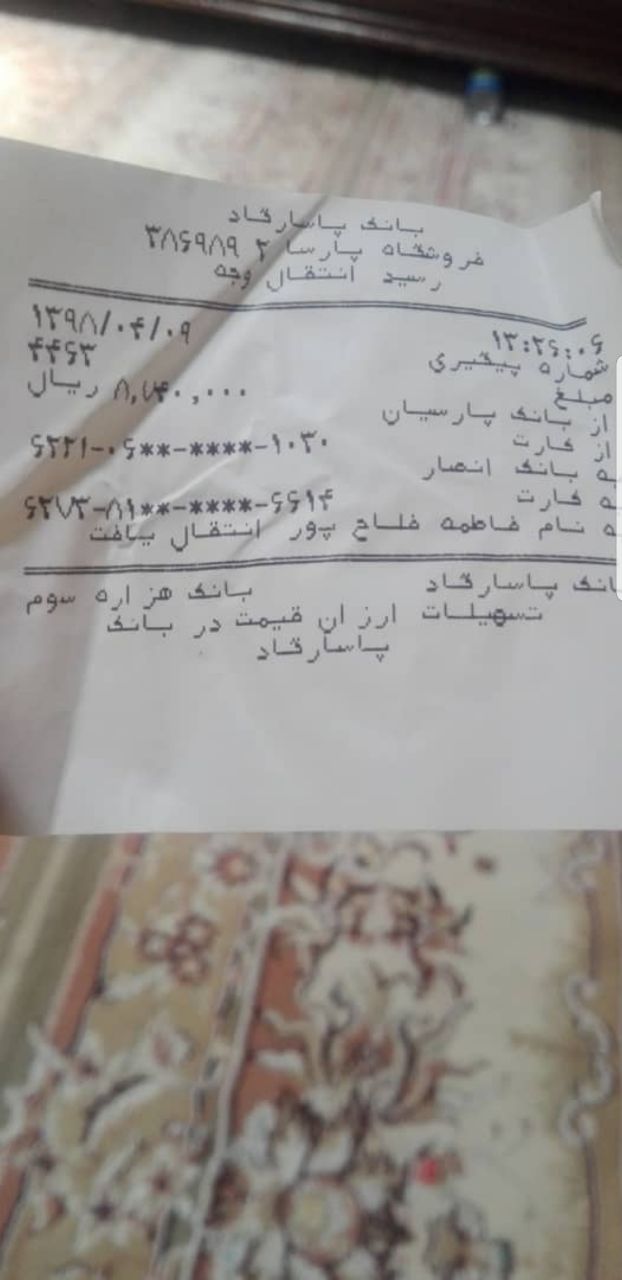 بانک پاسارگاد
فروشگاه پارسا ۲ ۳۸۶۹۸۹
رسید انتقال وجه
۱۳:۲۶:۰۶ ۱۳۹۸/۰۴/۰۹
شماره پیگیری ۴۴۶۳
مبلغ ۸,۷۴۰,۰۰۰ ریال
از بانک پارسیان
از کارت ۶۲۲۱-۰۶**-****-۱۰۳۰
ه بانک انصار
ه کارت ۶۲۷۳-۸۱**-****-۶۶۱۴
ه نام فاطمه فلاح پور انتقال یافت
انک پاسارگاد بانک هزاره سوم
تسهیلات ارزان قیمت در بانک
پاسارگاد